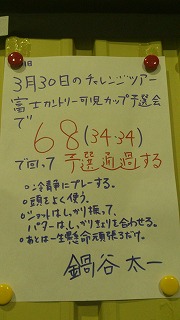 3月30日のチャレンジツアー
富士カントリー可児カップ予選会
で
68(34・34)
で回って 予選通過する
○冷静にプレーする。
○頭をよく使う。
○ショットはしっかり振って、
パターはしっかりきょりを合わせる。
○あとは一生懸命頑張るだけ。
鍋谷太一